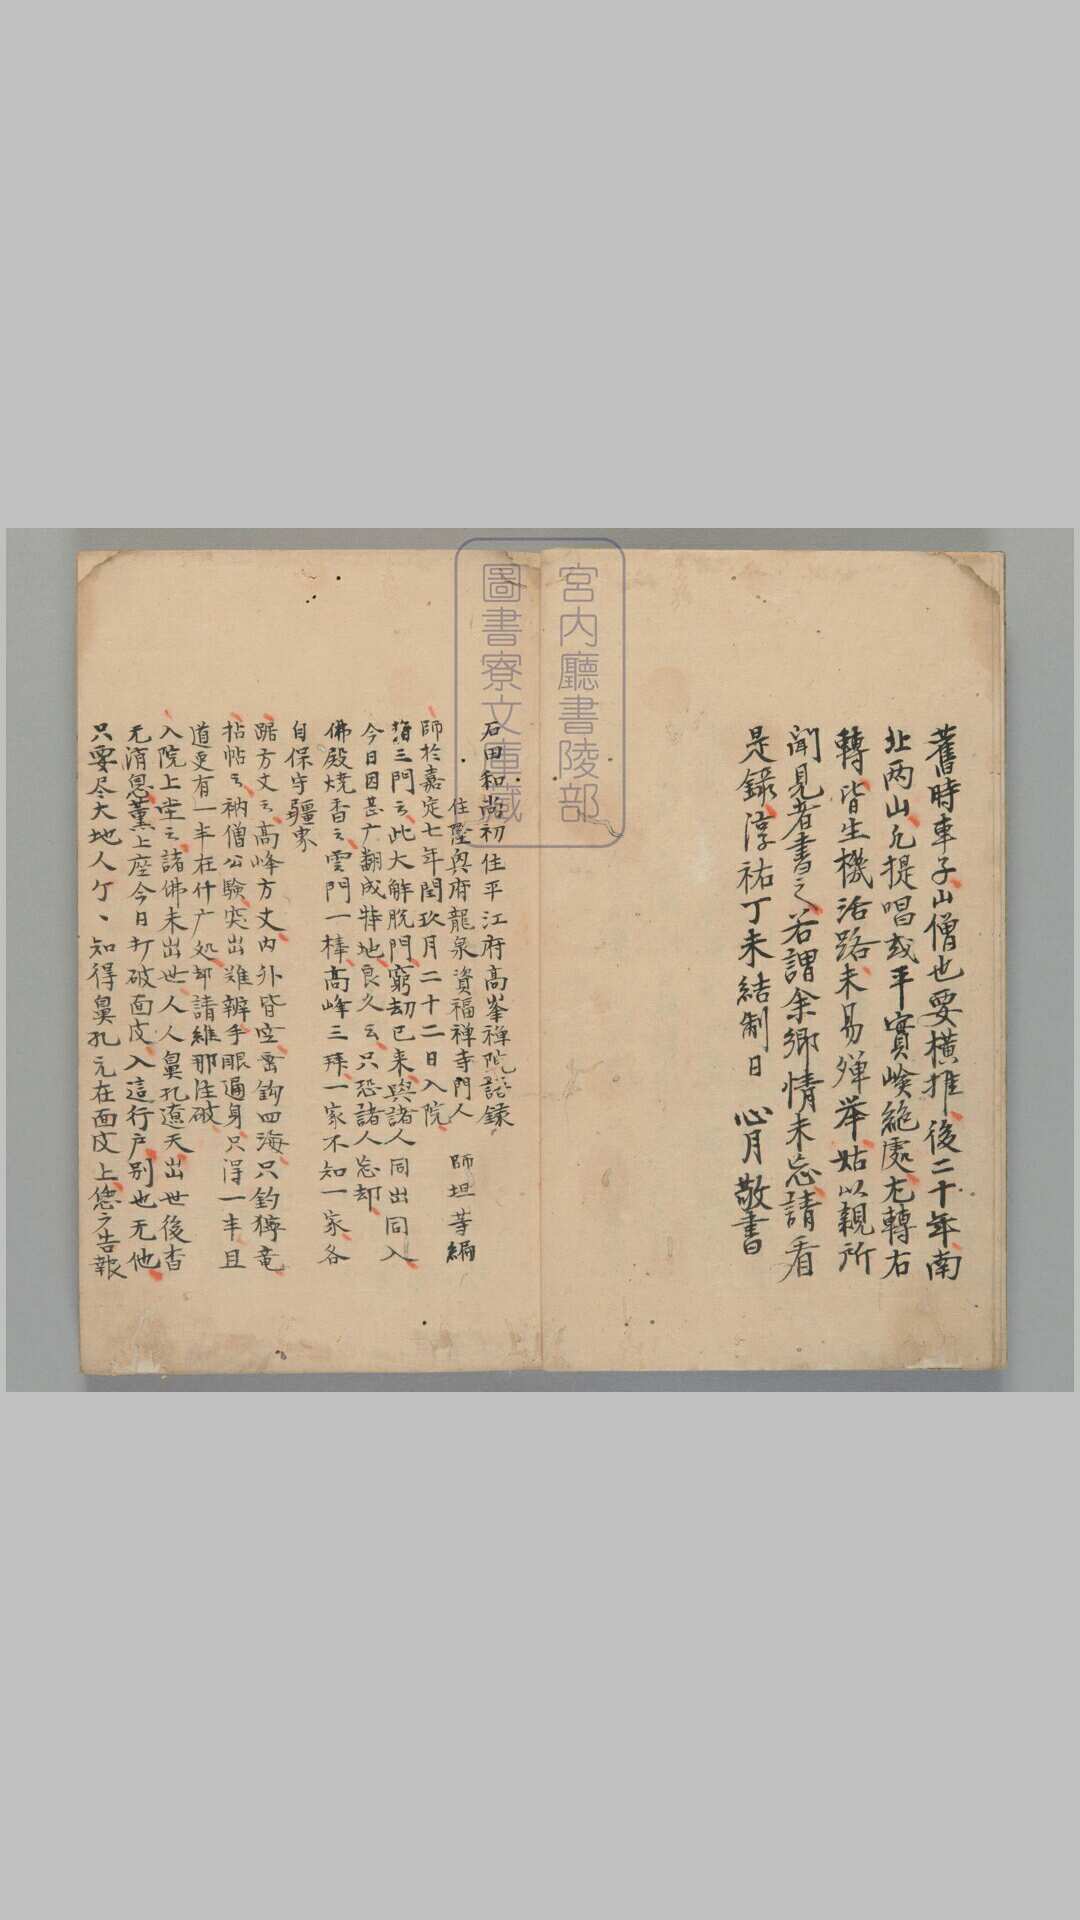 舊時車子山僧也要横推後二十年南
北两山凢提唱或平實崄絶處左轉右
轉皆生機活路未易殫举姑以親所
聞見者書之若謂余郷情未忘請看
是録淳祐丁未結制日 心月敬書
宮内廳書陵部
圖書寮文庫藏
石田和尚初住平江府高峯禅院語録
住隆興府龍泉資福禅寺門人 師坦等編
師於嘉定七年閏玖月二十二日入院
指三門云此大解脱門窮刼已来與諸人同出同入
今日因甚广翻成特地良久云只恐諸人忘却
佛殿焼香云雲門一棒高峰三拜一家不知一家各
自保守疆界
踞方丈云高峰方丈内外皆空密鈎四海只釣獰竜
拈帖云衲僧公驗突出难辨手眼遍身只得一半且
道更有一半在什广处却請維那注破
入院上堂云諸佛未出世人人鼻孔遼天出世後杳
无消息薫上座今日打破面皮入這行户别也无他
只要尽大地人个丶知得鼻孔元在面皮上恁之告報